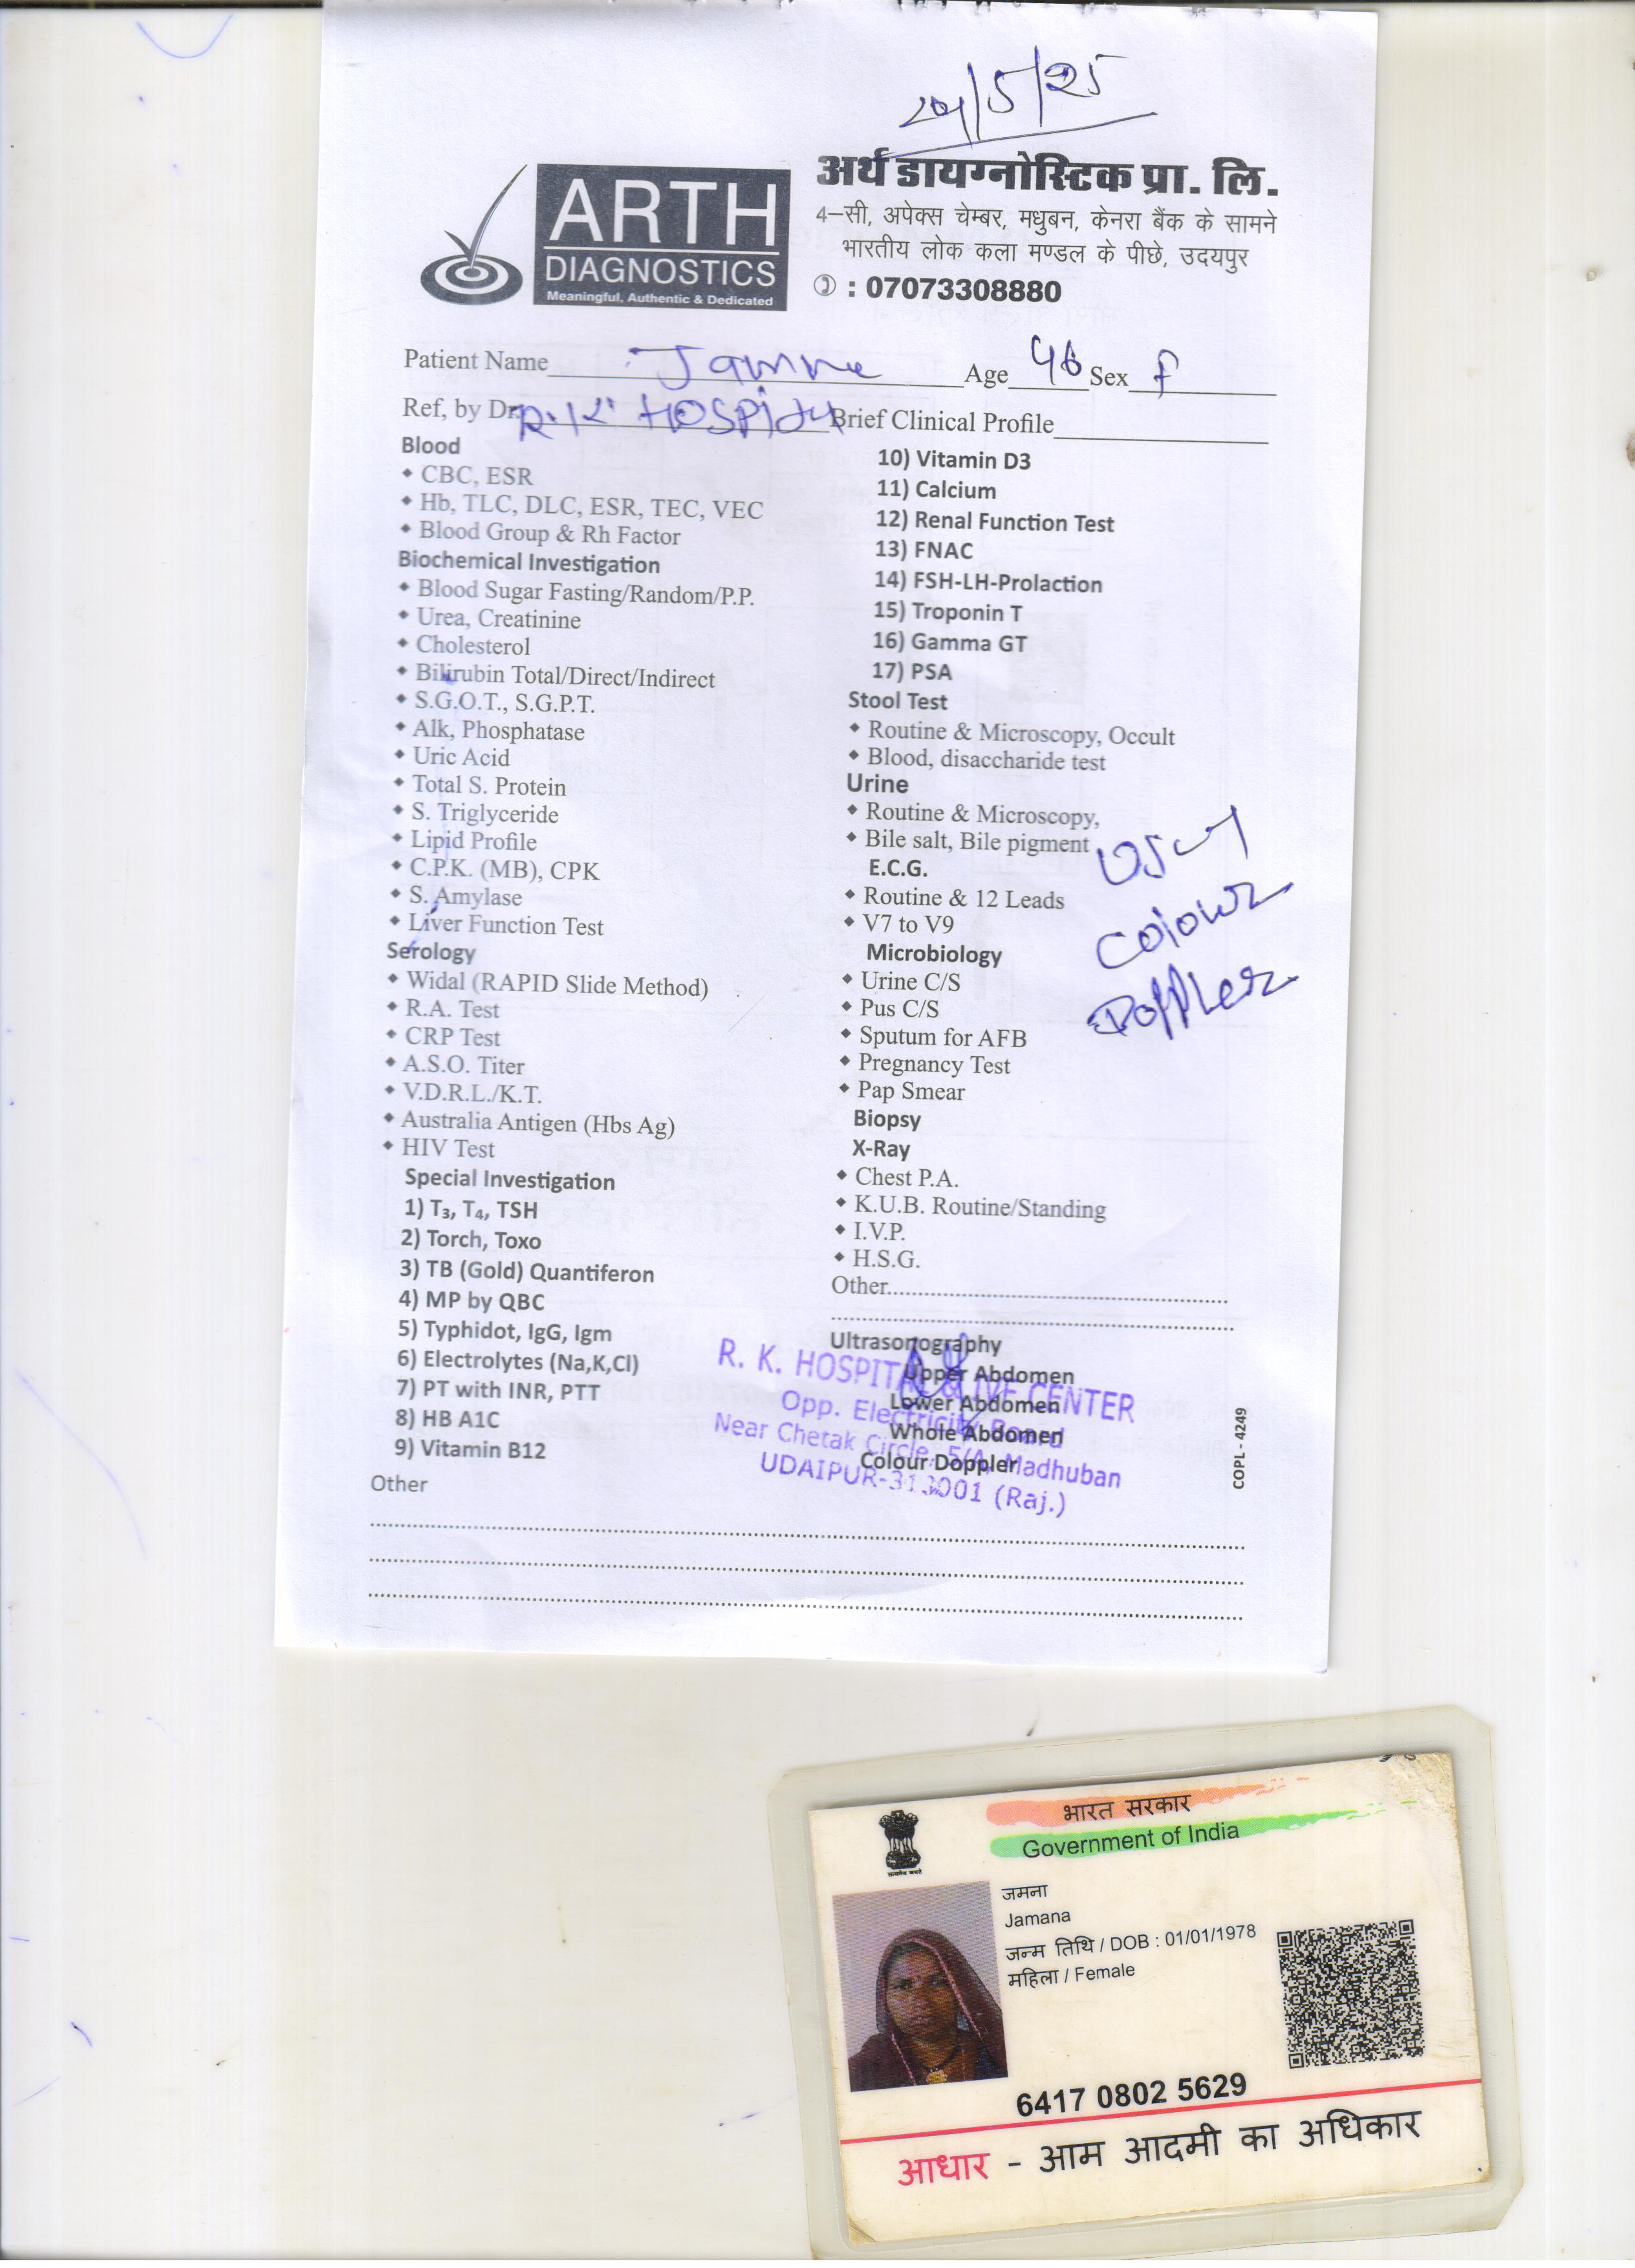 24/5/25
ARTH
DIAGNOSTICS
Meaningful, Authentic & Dedicated
अर्थ डायग्नोस्टिक प्रा. लि.
4–सी, अपेक्स चेम्बर, मधुबन, केनरा बैंक के सामने
भारतीय लोक कला मण्डल के पीछे, उदयपुर
: 07073308880
Patient Name Jamna Age 46 Sex F
Ref, by Dr. R.K. HOSPital Brief Clinical Profile
Blood
CBC, ESR
Hb, TLC, DLC, ESR, TEC, VEC
Blood Group & Rh Factor
Biochemical Investigation
Blood Sugar Fasting/Random/P.P.
Urea, Creatinine
Cholesterol
Bilirubin Total/Direct/Indirect
S.G.O.T., S.G.P.T.
Alk, Phosphatase
Uric Acid
Total S. Protein
S. Triglyceride
Lipid Profile
C.P.K. (MB), CPK
S. Amylase
Liver Function Test
Serology
Widal (RAPID Slide Method)
R.A. Test
CRP Test
A.S.O. Titer
V.D.R.L./K.T.
Australia Antigen (Hbs Ag)
HIV Test
Special Investigation
1) T3, T4, TSH
2) Torch, Toxo
3) TB (Gold) Quantiferon
4) MP by QBC
5) Typhidot, IgG, Igm
6) Electrolytes (Na,K,Cl)
7) PT with INR, PTT
8) HB A1C
9) Vitamin B12
Other
10) Vitamin D3
11) Calcium
12) Renal Function Test
13) FNAC
14) FSH-LH-Prolaction
15) Troponin T
16) Gamma GT
17) PSA
Stool Test
Routine & Microscopy, Occult
Blood, disaccharide test
Urine
Routine & Microscopy,
Bile salt, Bile pigment
E.C.G.
Routine & 12 Leads
V7 to V9
Microbiology
Urine C/S
Pus C/S
Sputum for AFB
Pregnancy Test
Pap Smear
Biopsy
X-Ray
Chest P.A.
K.U.B. Routine/Standing
I.V.P.
H.S.G.
Other
Ultrasonography
Upper Abdomen
Lower Abdomen
Whole Abdomen
Colour Doppler
Colour
Doppler
R. K. HOSPITAL & IVF CENTER
Opp. Electricity Board
Near Chetak Circle, 5/A, Madhuban
UDAIPUR-313001 (Raj.)
COPL - 4249
भारत सरकार
Government of India
जमना
Jamana
जन्म तिथि / DOB : 01/01/1978
महिला / Female
6417 0802 5629
आधार - आम आदमी का अधिकार